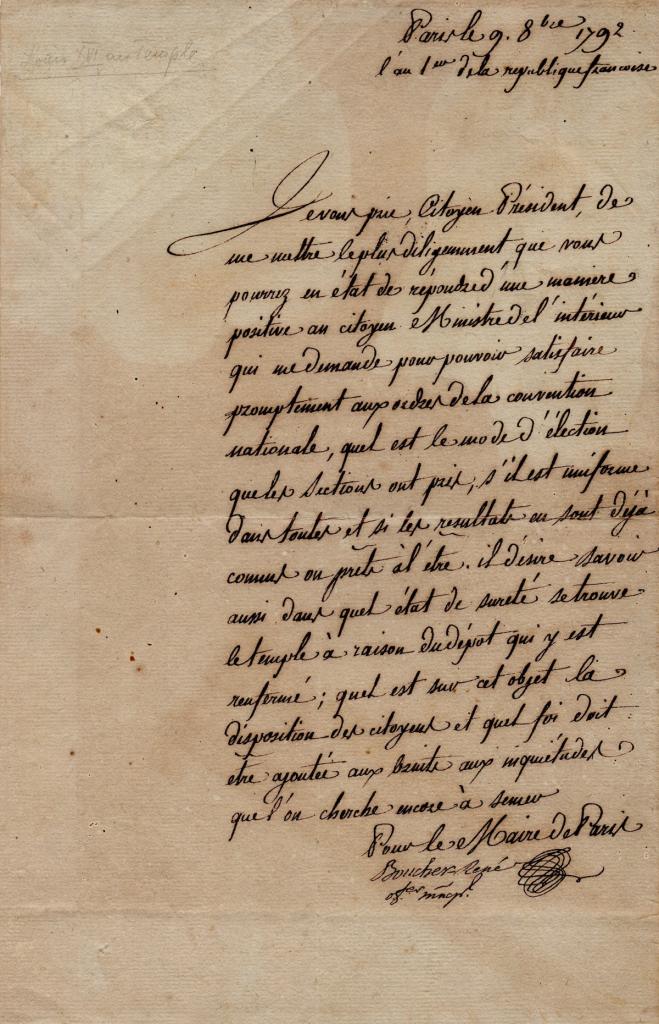 Paris le 9. 8bre 1792
l'an 1er de la republique françoise
Louis XVI au temple
Je vous prie, Citoyen Président, de
me mettre le plus diligemment que vous
pourrez en état de répondre d'une maniere
positive au citoyen Ministre de l'intérieur
qui me demande pour pouvoir satisfaire
promptement aux ordres de la convention
nationale, quel est le mode d'élection
que les Sections ont pris, s'il est uniforme
dans toutes et si les resultats en sont déjà
connus ou prêts à l'être. il désire savoir
aussi dans quel état de sureté se trouve
le temple à raison du dépot qui y est
renfermé; quel est sur cet objet la
disposition des citoyens et quel foi doit
être ajoutée aux bruits aux inquiétudes
que l'on cherche encore à semer
Pour le Maire de Paris
Boucher René
off.er mncpl.